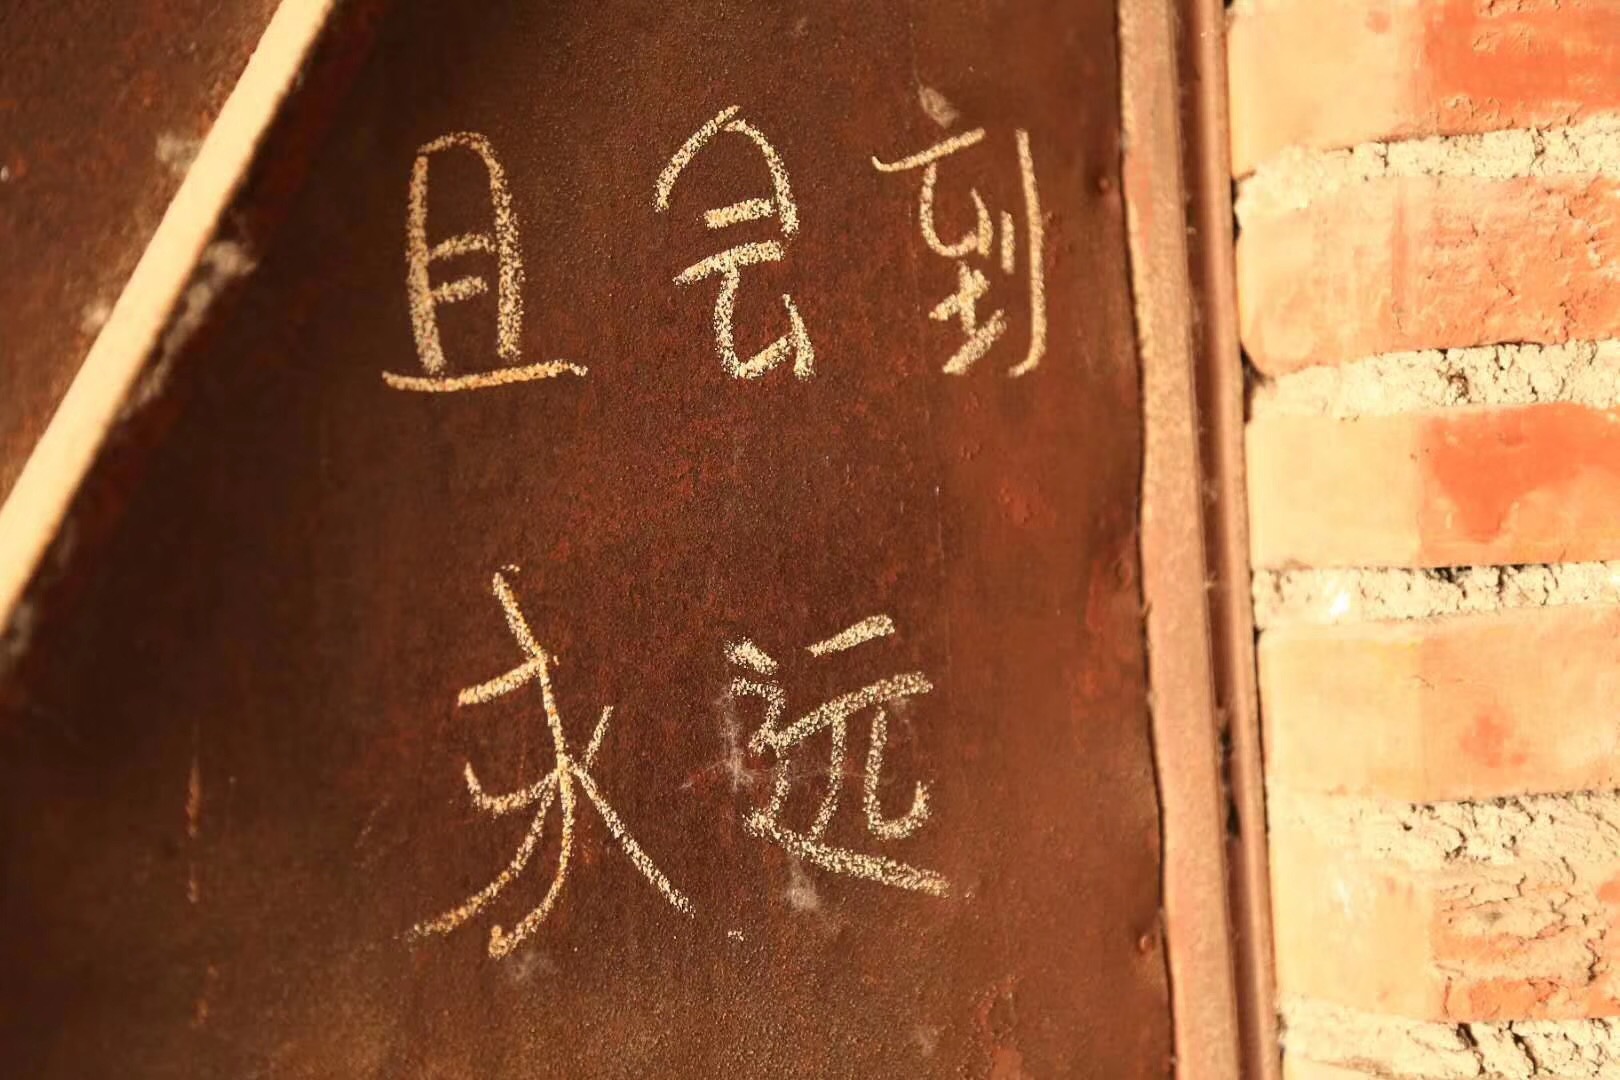 且会到
永远